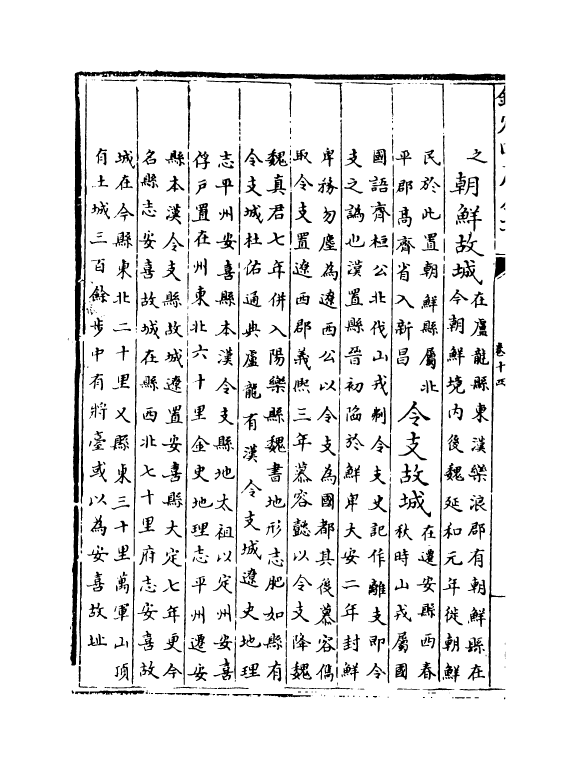 卷十四
之
朝鮮故城
在盧龍縣東漢樂浪郡有朝鮮縣在
今朝鮮境内後魏延和元年徙朝鮮
民於此置朝鮮縣屬北
平郡髙齊省入新昌
令支故城
在遷安縣西春
秋時山戎屬國
國語齊桓公北伐山戎刜令支史記作離支即令
支之譌也漢置縣晉初陷於鮮卑大安二年封鮮
卑務勿塵為遼西公以令支為國都其後慕容儁
取令支置遼西郡義熙三年慕容懿以令支降魏
魏真君七年併入陽樂縣魏書地形志肥如縣有
令支城杜佑通典盧龍有漢令支城遼史地理
志平州安喜縣本漢令支縣地太祖以定州安喜
俘戸置在州東北六十里金史地理志平州遷安
縣本漢令支縣故城遼置安喜縣大定七年更今
名縣志安喜故城在縣西北七十里府志安喜故
城在今縣東北二十里又縣東三十里萬軍山頂
有土城三百餘步中有將臺或以為安喜故址